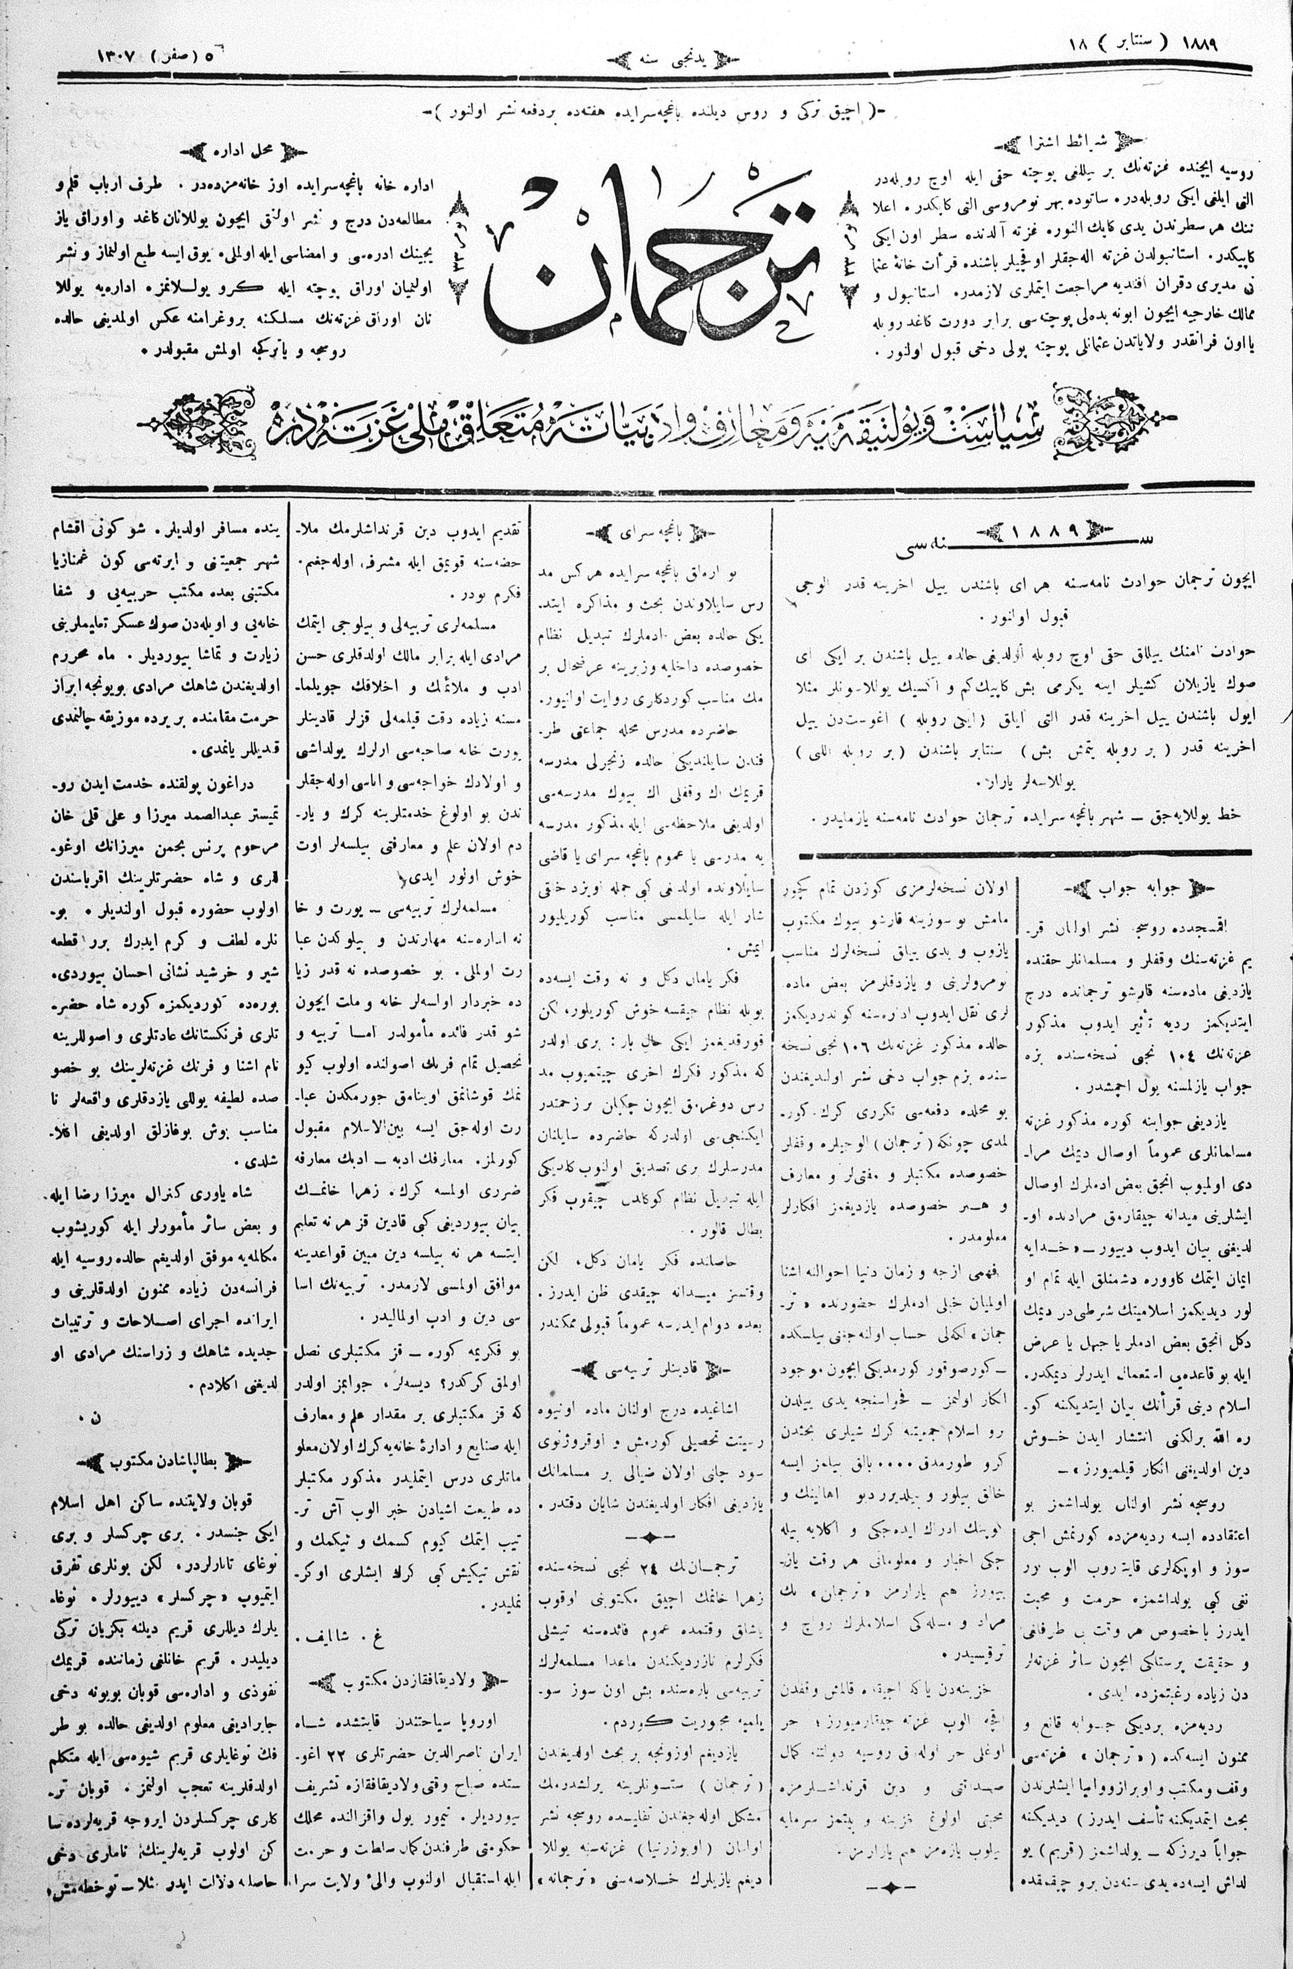 ١٨٨٩ ( سنتابر ) ١٨
یدنجی سنه
٥ ( صفر ) ١٣٠٧
-( اچیق ترکی و روس دیلنده باغچه‌سرایده هفته‌ده بردفعه نشر اولنور )-
شرائط اشترا
روسیه ایچنده غزته‌نك بر ییللغی پوچته حقی ایله اوچ روبله‌در
التی ایلغی ایکی روبله‌در. ساتوده بهر نومروسی التی کاپکدر. اعلا
ننك هر سطرندن یدی کاپك النور. غزته آلدنده سطر اون ایکی
کاپیکدر. استانبولدن غزته اله‌جقلر اوقجیلر باشنده قرأت خانهٔ عثما
نی مدیری دقران افندیه مراجعت ایتملری لازمدر. استانبول و
ممالك خارجیه ایچون ابونه بدلی پوچته‌سی برابر دورت کاغد روبله
یا اون فرانقدر ولایاتدن عثمانلی پوچته پولی دخی قبول اولنور.
ترجمان
محل اداره
اداره خانه باغچه‌سرایده اوز خانه‌مزده‌در. طرف ارباب قلم و
مطالعه‌دن درج و نشر اولنق ایچون یوللانان کاغد و اوراق یاز
یجینك ادره‌سی و امضاسی ایله اولملی. یوق ایسه طبع اولنماز و نشر
اولنمیان اوراق پوچته ایله کرو یوللانمز. اداره‌یه یوللا
نان اوراق غزته‌نك مسلکنه پروغرامنه عکس اولمدیغی حالده
روسجه و یا ترکجه اولمش مقبولدر.
سیاست و پولتیقه‌یه و معارف و ادبیاته متعلق ملی غزته‌در
١٨٨٩
سنه‌سی
ایچون ترجمان حوادث نامه‌سنه هر ای باشندن ییل اخرینه قدر الوجی
قبول اولنور.
حوادث نامنك ییللق حقی اوچ روبله اولدیغی حالده ییل باشندن بر ایکی ای
صوك یازیلان کشیلر اینه یکرمی بش کاپیك کم و اکسیك یوللاسونلر مثلا
ایول باشندن ییل اخرینه قدر التی ایلق (ایکی روبله) اغوستدن ییل
اخرینه قدر (بر روبله یتمش بش) سنتابر باشندن (بر روبله اللی)
یوللاسه‌لر یارار.
خط یوللایه‌جق — شهر باغچه سرایده ترجمان حوادث نامه‌سنه یازملیدر.
جوابه جواب
اقمسجدده روسجه نشر اولنان قر-
یم غزته‌سنك وقفلر و مسلمانلر حقنده
یازدیغی ماده‌سنه قارشو ترجمانده درج
ایتدیکمز ردیه تأثیر ایدوب مذکور
غزته‌نك ١٠٤ نجی نسخه‌سنده بزه
جواب یازلمسنه یول اچمشدر.
یازدیغی جوابنه کوره مذکور غزته
مسلمانلری عموماً اوصال دیمك مرا-
دی اولمیوب انجق بعض ادملرك اوصال
ایشلرینی میدانه چیقارمق مرادنده او-
لدیغنی بیان ایدوب دییور — «خدایه
ایمان ایتمك کاووره دشمنلق ایله تمام او
لور دیدیکمز اسلامیتك شرطی‌در دیمك
دکل انجق بعض ادملر یا جهل یا غرض
ایله بو قاعده‌یی استعمال ایدرلر دیمکدر.
اسلام دینی قرأنك بیان ایتدیکنه کو-
ره الله برلکنی انتشار ایدن خوش
دین اولدیغنی انکار قیلمیورز» —
روسجه نشر اولنان یولداشمز بو
اعتقادده ایسه ردیه‌مزده کورنمش اجی
سوز و اویکه‌لری قایتروب الوب بر
نفی کبی یولداشمزه حرمت و محبت
ایدرز باخصوص هر وقت بی طرفانی
و حقیقت پرستلکی ایچون سائر غزته‌لر
دن زیاده رغبتمزده ایدی.
ردیه‌مزه بردیکی جوابه قانع و
ممنون ایسه‌کده («ترجمان» غزته‌سی
وقف و مکتب و اوبرازووانیا ایشلرندن
بحث ایتمدیکنه تأسف ایدرز) دیدیکنه
جواباً دیرزکه — یولداشمز (قریم) یو
لداش ایسه‌ده یدی سنه‌دن برو چیقمقده
اولان نسخه‌لرمزی کوزدن تمام کچور
مامش بو سوزینه قارشو بیوك مکتوب
یازوب و یدی ییللق نسخه‌لرك مناسب
نومرولرینی و یازدقلرمز بعض ماده
لری نقل ایدوب اداره‌سنه کوندردیکمز
حالده مذکور غزته‌نك ١٠٦ نجی نسخه
سنده بزم جواب دخی نشر اولندیغندن
بو محلده دفعه‌سی تکرری کرك کور-
لمدی چونکه (ترجمان) الوجیلره وقفلر
خصوصده مکتبلر و مفتی‌لر و معارف
و هنر خصوصده یازدیغمز افکارلر
معلومدر.
فهمی ازجه و زمان دنیا احوالنه اشنا
اولمیان خیلی ادملرك حضورنده «تر-
جمان» اکه‌لی حساب اولنه‌جغنی بیلسکده
— کورصوقور کورمدیکی ایچون موجود
انکار اولنمز — فخراسنجه یدی ییلدن
رو اسلام جمعیتنه کرك شیلری بحثدن
کرو طورمدق.... بالق بیلمز ایسه
خالق بیلور و بیلدیرر دیو اهالینك و
اوینك ادراك ایده‌جکی و اکلایه بیله
جکی اخبار و معلوماتی هر وقت یاز-
ییورز هم یازارمز «ترجمان» نك
مراد و مسلکی اسلاملرك رواج و
ترقیسیدر.
خزینه‌دن یا که اجیقده قالمش وقفدن
اقچه الوب غزته چیقارمیورز؛ حر
اوغلی حر اوله‌رق روسیه دولتنه کمال
صداقتی و دین قرنداشلرمزه
محبتی اولوغ خزینه و بیتمز سرمایه
بیلوب یازه‌مز هم یازارمز.
باغچه سرای
بو ارەلق باغچه سرایده هرکس مد
رس سایلاوندن بحث و مذاکره ایتد-
یکی حالده بعض ادملرك تبدیل نظام
خصوصده داخلیه وزیرینه عرضحال بر
مك مناسب کوردکلری روایت اولنیور.
حاضرده مدرس محله جماعتی طر-
فندن سایلندیکی حالده زنجرلی مدرسه
قریمك اك وقفلی اك بیوك مدرسه‌سی
اولدیغی ملاحظه‌سی ایله مذکور مدرسه
یه مدرسی یا عموم باغچه سرای یا قاضی
سایلاونده اولدیغی کبی جمله اویزد خلقی
شار ایله سایلمسی مناسب کوریلیور
ایمش.
فکر یامان دکل و نه وقت ایسه‌ده
بویله نظام چیقسه خوش کوریلور، لکن
قورقدیغمز ایکی حال بار: بری اولدر
که مذکور فکرك اخری چیتمیوب مد
رس دوغرمق ایچون چکیلان بر زحمتدر
ایکنجیسی اولدرکه حاضرده سایلنان
مدرسلرك بری تصدیق اولنوب کلدیکی
ایله تبدیل نظام کوکلدن چیقوب فکر
بطال قالور.
حاصلنده فکر یامان دکل، لکن
وقتسز میدانه چیقدی ظن ایدرز.
بعده دوام ایدرسه عموماً قبولی ممکندر
قادینلر تربیه‌سی
اشاغیده درج اولنان ماده اونیوه
رسیتت تحصیلی کورمش و اوقروژنوی
سود جانی اولان ضیالی بر مسلمانك
یازدیغی افکار اولدیغندن شایان دقتدر.
ترجمانك ٢٤ نجی نسخه‌سنده
زهرا خانمك اجیق مکتوبنی اوقوب
یاشلق وقتمده عموم فائده‌سنه تیشلی
فکرلرم تازردیکندن ماعدا مسلمه‌لرك
تربیه‌سی باره‌سنده بش اون سوز سو-
یلمیه مجبوریت کوردم.
یازدیغم اوزونجه بر بحث اولدیغندن
(ترجمان) ستونلرینه یرلشدرمك
مشکل اوله‌جغندن تفلیسده روسجه نشر
اولنان (اوبوزرنیا) غزته‌سنه یوللا
دیغم یازیلرك خلاصه‌سنی «ترجمانه»
تقدیم ایدوب دین قرنداشلرمك ملا-
حضه‌سنه قویمق ایله مشرف اوله‌جغم.
فکرم بودر.
مسلمه‌لری تربیه‌لی و بیلوجی ایتمك
مرادی ایله برابر مالك اولدقلری حسن
ادب و ملائمك و اخلاقك جویلما-
مسنه زیاده دقت قیلمه‌لی قزلر قادینلر
یورت خانه صاحبه‌سی ارلرك یولداشی
و اولادك خواجه‌سی و اناسی اوله‌جقلر
ندن بو اولوغ خدمتلرینه کرك و یار-
دم اولان علم و معارفتی بیلسه‌لر اوت
خوش اولور ایدی.
مسلمه‌لرك تربیه‌سی — یورت و خا
نه اداره‌سنه مهارتدن و بیلوکدن عبا
رت اولملی. بو خصوصده نه قدر زیا
ده خبردار اولسه‌لر خانه و ملت ایچون
شو قدر فائده مأمولدر اما تربیه و
تحصیل تمام فرنك اصولنده اولوب کیو
نمك قوشانمق اوینامق جورمکدن عبا-
رت اوله‌جق ایسه بین‌الاسلام مقبول
کورلمز. معارفك ادبه — ادبك معارفه
ضرری اولمسه کرك. زهرا خانمك
بیان بیوردیغی کبی قادین قز هر نه تعلیم
ایتسه هر نه بیلسه دین مبین قواعدینه
موافق اولمسی لازمدر. تربیه‌نك اسا
سی دین و ادب اولمالیدر.
بو فکریمه کوره — قز مکتبلری نصل
اولمق کرکدر؟ دیسه‌لر، جوابمز اولدر
که قز مکتبلری بر مقدار علم و معارف
ایله صنایع و ادارهٔ خانه‌یه کرك اولان معلو
ماتلری درس ایتملیدر مذکور مکتبلر
ده طبیعت اشیادن خبر الوب آش تر-
تیب ایتمك کیوم کسمك و تیکمك و
نقش تیکیش کبی کرك ایشلری اوکر-
نملیدر.
غ. شایف.
ولادیقافقازدن مکتوب
اوروپا سیاحتندن قایتشده شاه
ایران ناصرالدین حضرتلری ٢٢ اغو-
ستده صباح وقتی ولادیقافقازه تشریف
بیوردیلر. تیمور یول واقزالنده محلك
حکومتی طرفندن کمال سلطات و حرمت
ایله استقبال اولنوب والئ ولایت سرا
ینده مسافر اولدیلر. شو کونی اقشام
شهر جمعیتنی و ایرته‌سی کون غمنازیا
مکتبنی بعده مکتب حربیه‌یی و شفا
خانه‌یی و اویله‌دن صوك عسکر تعلیملرینی
زیارت و تماشا بیوردیلر. ماه محررم
اولدیغندن شاهك مرادی بوینجه ابراز
حرمت مقامنده بر یرده موزیقه چالنمدی
قندیللر یانمدی.
دراغون پولقنده خدمت ایدن رو-
تمیستر عبدالصمد میرزا و علی قلی خان
مرحوم پرنس بحمن میرزانك اوغو-
للری و شاه حضرتلرینك اقرباسندن
اولوب حضوره قبول اولندیلر. بو-
نلره لطف و کرم ایدرك بررقطعه
شیر و خرشید نشانی احسان بیوردی.
بوره‌ده کوردیکمزه کوره شاه حضر-
تلری فرنکستانك عادتلری و اصوللرینه
نام اشنا و فرنك غزته‌لرینك بو خصو
صده لطیفه یوللی یازدقلری واقعه‌لر نا
مناسب بوش بوغازلق اولدیغی اکلا-
شلدی.
شاه یاوری کنرال میرزا رضا ایله
و بعض سائر مأمورلر ایله کوریشوب
مکالمه‌یه موفق اولدیغم حالده روسیه ایله
فرانسه‌دن زیاده ممنون اولدقلرینی و
ایرانده اجرای اصلاحات و ترتیبات
جدیده شاهك و زراسنك مرادی او
لدیغنی اکلادم.
ن.
بطالپاشادن مکتوب
قوبان ولایتنده ساکن اهل اسلام
ایکی جنسدر. بری چرکسلر و بری
نوغای تاتارلردر. لکن بونلری تفرق
ایتمیوب «چرکسلر» دییورلر. نوغا-
یلرك دیللری قریم دیلنه بکزیان ترکی
دیلیدر. قریم خانلغی زماننده قریمك
نفوذی و اداره‌سی قوبان بوینه دخی
جابرادیغی معلوم اولدیغی حالده بو طر
فك نوغایلری قریم شیوه‌سی ایله متکلم
اولدقلرینه تعجب اولنمز. قوبان تر-
کلری چرکسلردن ایروجه قریه‌لرده سا
کن اولوب قریه‌لرینك ناملری دخی
حاصله دلالت ایدر مثلا — توخطه‌مش،